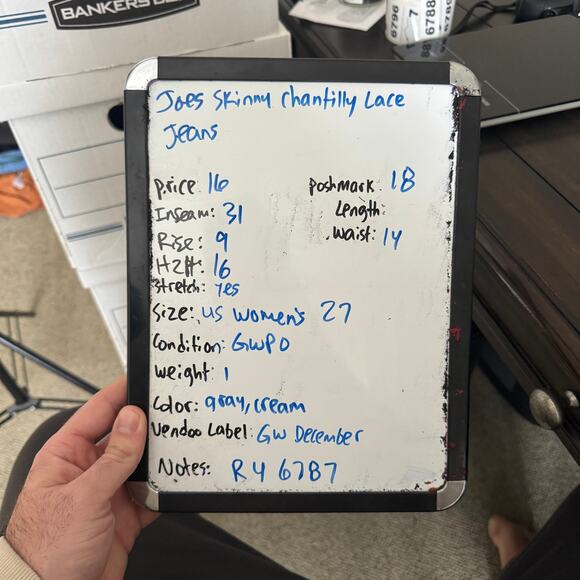 BANKERS BOX
Joes Skinny Chantilly Lace
Jeans
price: 16
poshmark: 18
Inseam: 31
Length:
Rise: 9
Waist: 14
H2H: 16
Stretch: yes
Size: US Women's 27
Condition: GWPO
Weight: 1
Color: gray, cream
Vendoo Label: GW December
Notes: R4 67B7